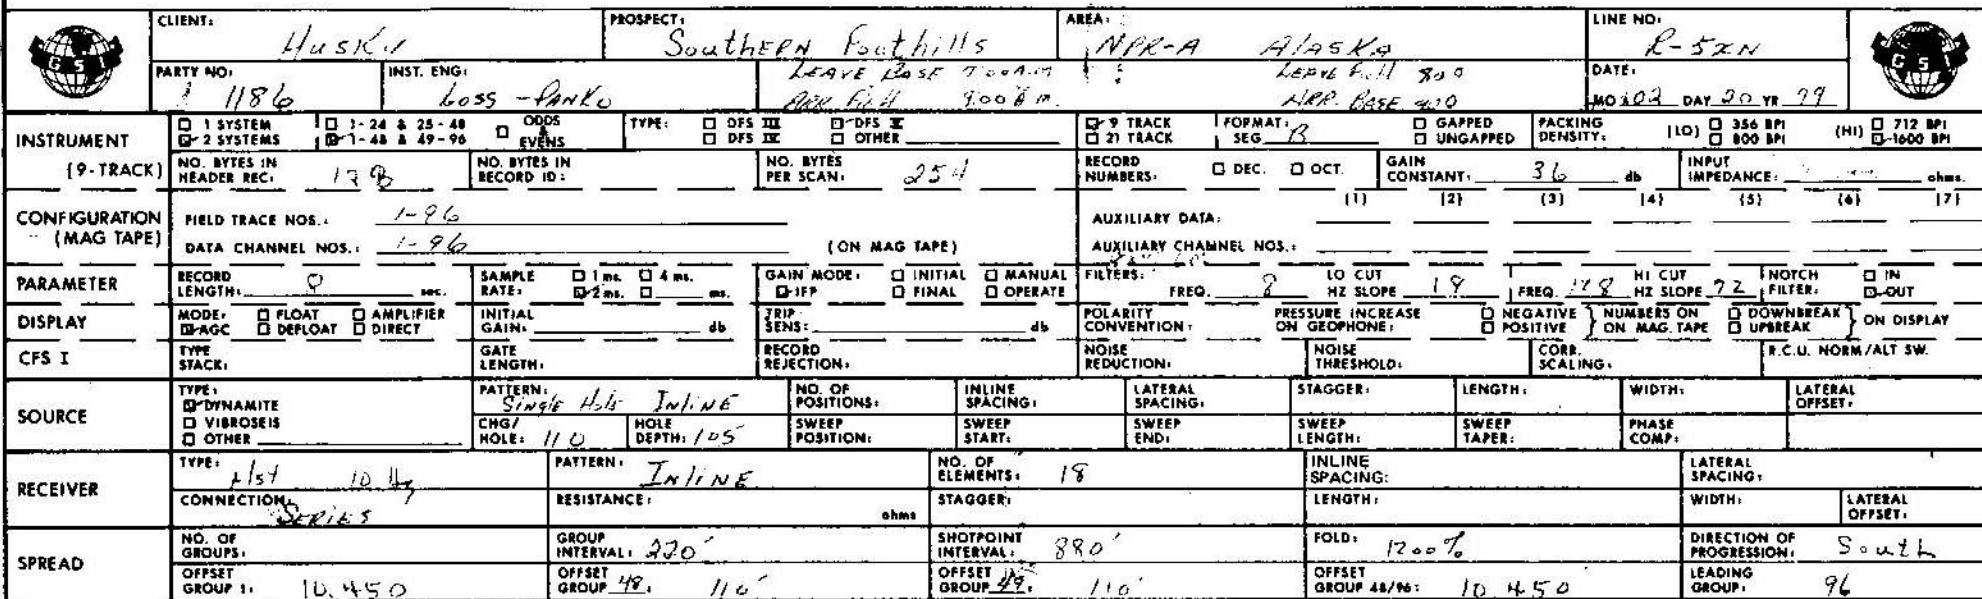 CLIENT: Husky PROSPECT: Southern Foothills AREA: NPR-A Alaska LINE NO: R-5XN
GSI
GSI
PARTY NO: 1186 INST. ENG: Loss - Panko LEAVE BASE 7:00 A.M LEAVE 800 DATE:
ARR. 9:00 ARR. BASE 910 MO 02 DAY 20 YR 79
INSTRUMENT (9-TRACK)
□ 1 SYSTEM □ 1-24 & 25-48 □ ODDS & EVENS TYPE: □ DFS III ☑ DFS V ☑ 9 TRACK FORMAT: □ GAPPED PACKING DENSITY: (LO) □ 356 BPI (HI) □ 712 BPI
☑ 2 SYSTEMS ☑ 1-48 & 49-96 □ DFS IV □ OTHER □ 21 TRACK SEG B □ UNGAPPED □ 800 BPI ☑ 1600 BPI
NO. BYTES IN HEADER REC: NO. BYTES IN RECORD ID: NO. BYTES PER SCAN: 254 RECORD NUMBERS: □ DEC. □ OCT. GAIN CONSTANT: 36 db INPUT IMPEDANCE: ohms.
CONFIGURATION (MAG TAPE)
FIELD TRACE NOS.: 1-96 AUXILIARY DATA: (1) (2) (3) (4) (5) (6) (7)
DATA CHANNEL NOS.: 1-96 (ON MAG TAPE) AUXILIARY CHANNEL NOS.:
PARAMETER RECORD LENGTH: sec. SAMPLE RATE: □ 1 ms. □ 4 ms. ☑ 2 ms. □ ms. GAIN MODE: □ INITIAL □ MANUAL ☑ IFP □ FINAL □ OPERATE FILTERS: FREQ. 8 LO CUT HZ SLOPE 18 FREQ. 128 HI CUT HZ SLOPE 72 NOTCH FILTER: □ IN ☑ OUT
DISPLAY MODE: □ FLOAT □ AMPLIFIER ☑ AGC □ DEFLOAT □ DIRECT INITIAL GAIN: db TRIP SENS: db POLARITY CONVENTION: PRESSURE INCREASE ON GEOPHONE: □ NEGATIVE □ POSITIVE } NUMBERS ON MAG. TAPE □ DOWNBREAK □ UPBREAK } ON DISPLAY
CFS I TYPE STACK: GATE LENGTH: RECORD REJECTION: NOISE REDUCTION: NOISE THRESHOLD: CORR. SCALING: R.C.U. NORM/ALT SW.
SOURCE TYPE: ☑ DYNAMITE □ VIBROSEIS □ OTHER
PATTERN: Single Hole Inline NO. OF POSITIONS: INLINE SPACING: LATERAL SPACING: STAGGER: LENGTH: WIDTH: LATERAL OFFSET:
CHG/HOLE: 110 HOLE DEPTH: 105 SWEEP POSITION: SWEEP START: SWEEP END: SWEEP LENGTH: SWEEP TAPER: PHASE COMP:
RECEIVER TYPE: 10 Hz PATTERN: Inline NO. OF ELEMENTS: 18 INLINE SPACING: LATERAL SPACING:
CONNECTION: Series RESISTANCE: ohms STAGGER: LENGTH: WIDTH: LATERAL OFFSET:
SPREAD NO. OF GROUPS: GROUP INTERVAL: 220' SHOTPOINT INTERVAL: 880' FOLD: 1200% DIRECTION OF PROGRESSION: South
OFFSET GROUP 1: 10,450 OFFSET GROUP 48: 110' OFFSET GROUP 49: 110' OFFSET GROUP 48/96: 10,450 LEADING GROUP: 96